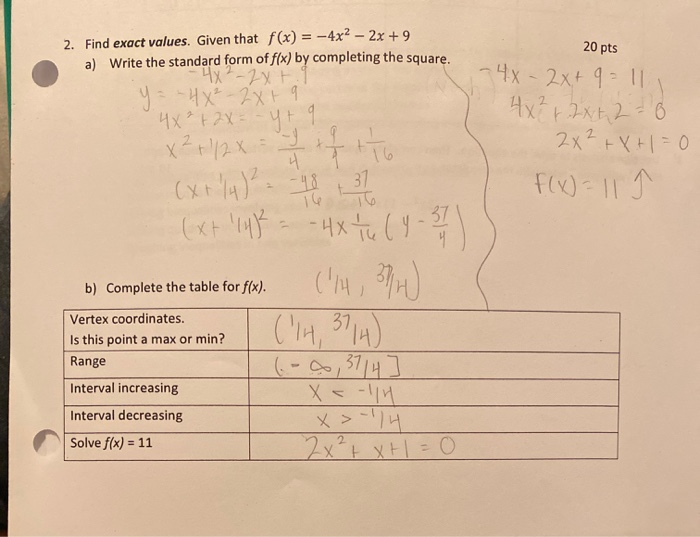 2. Find exact values. Given that f(x) = −4x² − 2x + 9
20 pts
a) Write the standard form of f(x) by completing the square.
-4x² - 2x + 9
y = -4x² - 2x + 9
4x² + 2x = -y + 9
x² + 1/2x = -y/4 + 9/9 + 1/16
(x + 1/4)² = -48/16 + 37/16
(x + 1/4)² = -4 x 1/16 (y - 37/4)
(1/4, 37/4)
-4x - 2x + 9 = 11
4x² + 2x + 2 = 0
2x² + x + 1 = 0
f(x) = 11 ↑
b) Complete the table for f(x).
Vertex coordinates.
Is this point a max or min?
(1/4, 37/4)
Range
(-∞, 37/4]
Interval increasing
x < -1/4
Interval decreasing
x > -1/4
Solve f(x) = 11
2x² + x + 1 = 0